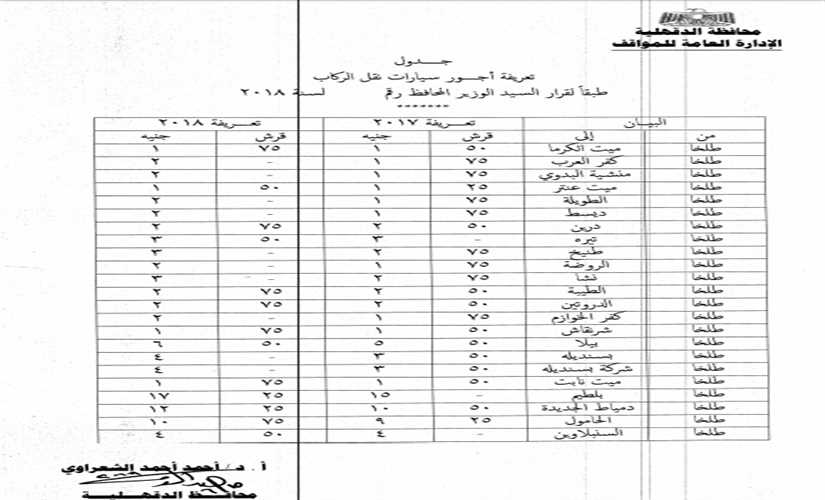 محافظة الدقهلية
الإدارة العامة للمواقف
جدول
تعريفة أجور سيارات نقل الركاب
طبقاً لقرار السيد الوزير المحافظ رقم لسنة ٢٠١٨
البيان تعريفة ٢٠١٧ تعريفة ٢٠١٨
من إلى قرش جنيه قرش جنيه
طلخا ميت الكرما ٥٠ ١ ٧٥ ١
طلخا كفر العرب ٧٥ ١ - ٢
طلخا منشية البدوي ٧٥ ١ - ٢
طلخا ميت عنتر ٢٥ ١ ٥٠ ١
طلخا الطويلة ٧٥ ١ - ٢
طلخا ديسط ٧٥ ١ - ٢
طلخا درين ٥٠ ٢ ٧٥ ٢
طلخا نبره - ٣ ٥٠ ٣
طلخا طنيخ ٧٥ ٢ - ٣
طلخا الروضة ٧٥ ١ - ٢
طلخا نشا ٧٥ ٢ - ٣
طلخا الطيبة ٥٠ ٢ ٧٥ ٢
طلخا الدروتين ٥٠ ٢ ٧٥ ٢
طلخا كفر الخوازم ٧٥ ١ - ٢
طلخا شرنقاش ٥٠ ١ ٧٥ ١
طلخا بيلا ٥٠ ٥ ٥٠ ٦
طلخا بسنديله ٥٠ ٣ - ٤
طلخا شركة بسنديله ٥٠ ٣ - ٤
طلخا ميت نابت ٥٠ ١ ٧٥ ١
طلخا بلطيم - ١٥ ٢٥ ١٧
طلخا دمياط الجديدة ٥٠ ١٠ ٢٥ ١٢
طلخا الحامول ٢٥ ٩ ٧٥ ١٠
طلخا السنبلاوين - ٤ ٥٠ ٤
أ . د / أحمد أحمد الشعراوي
محافظ الدقهلية